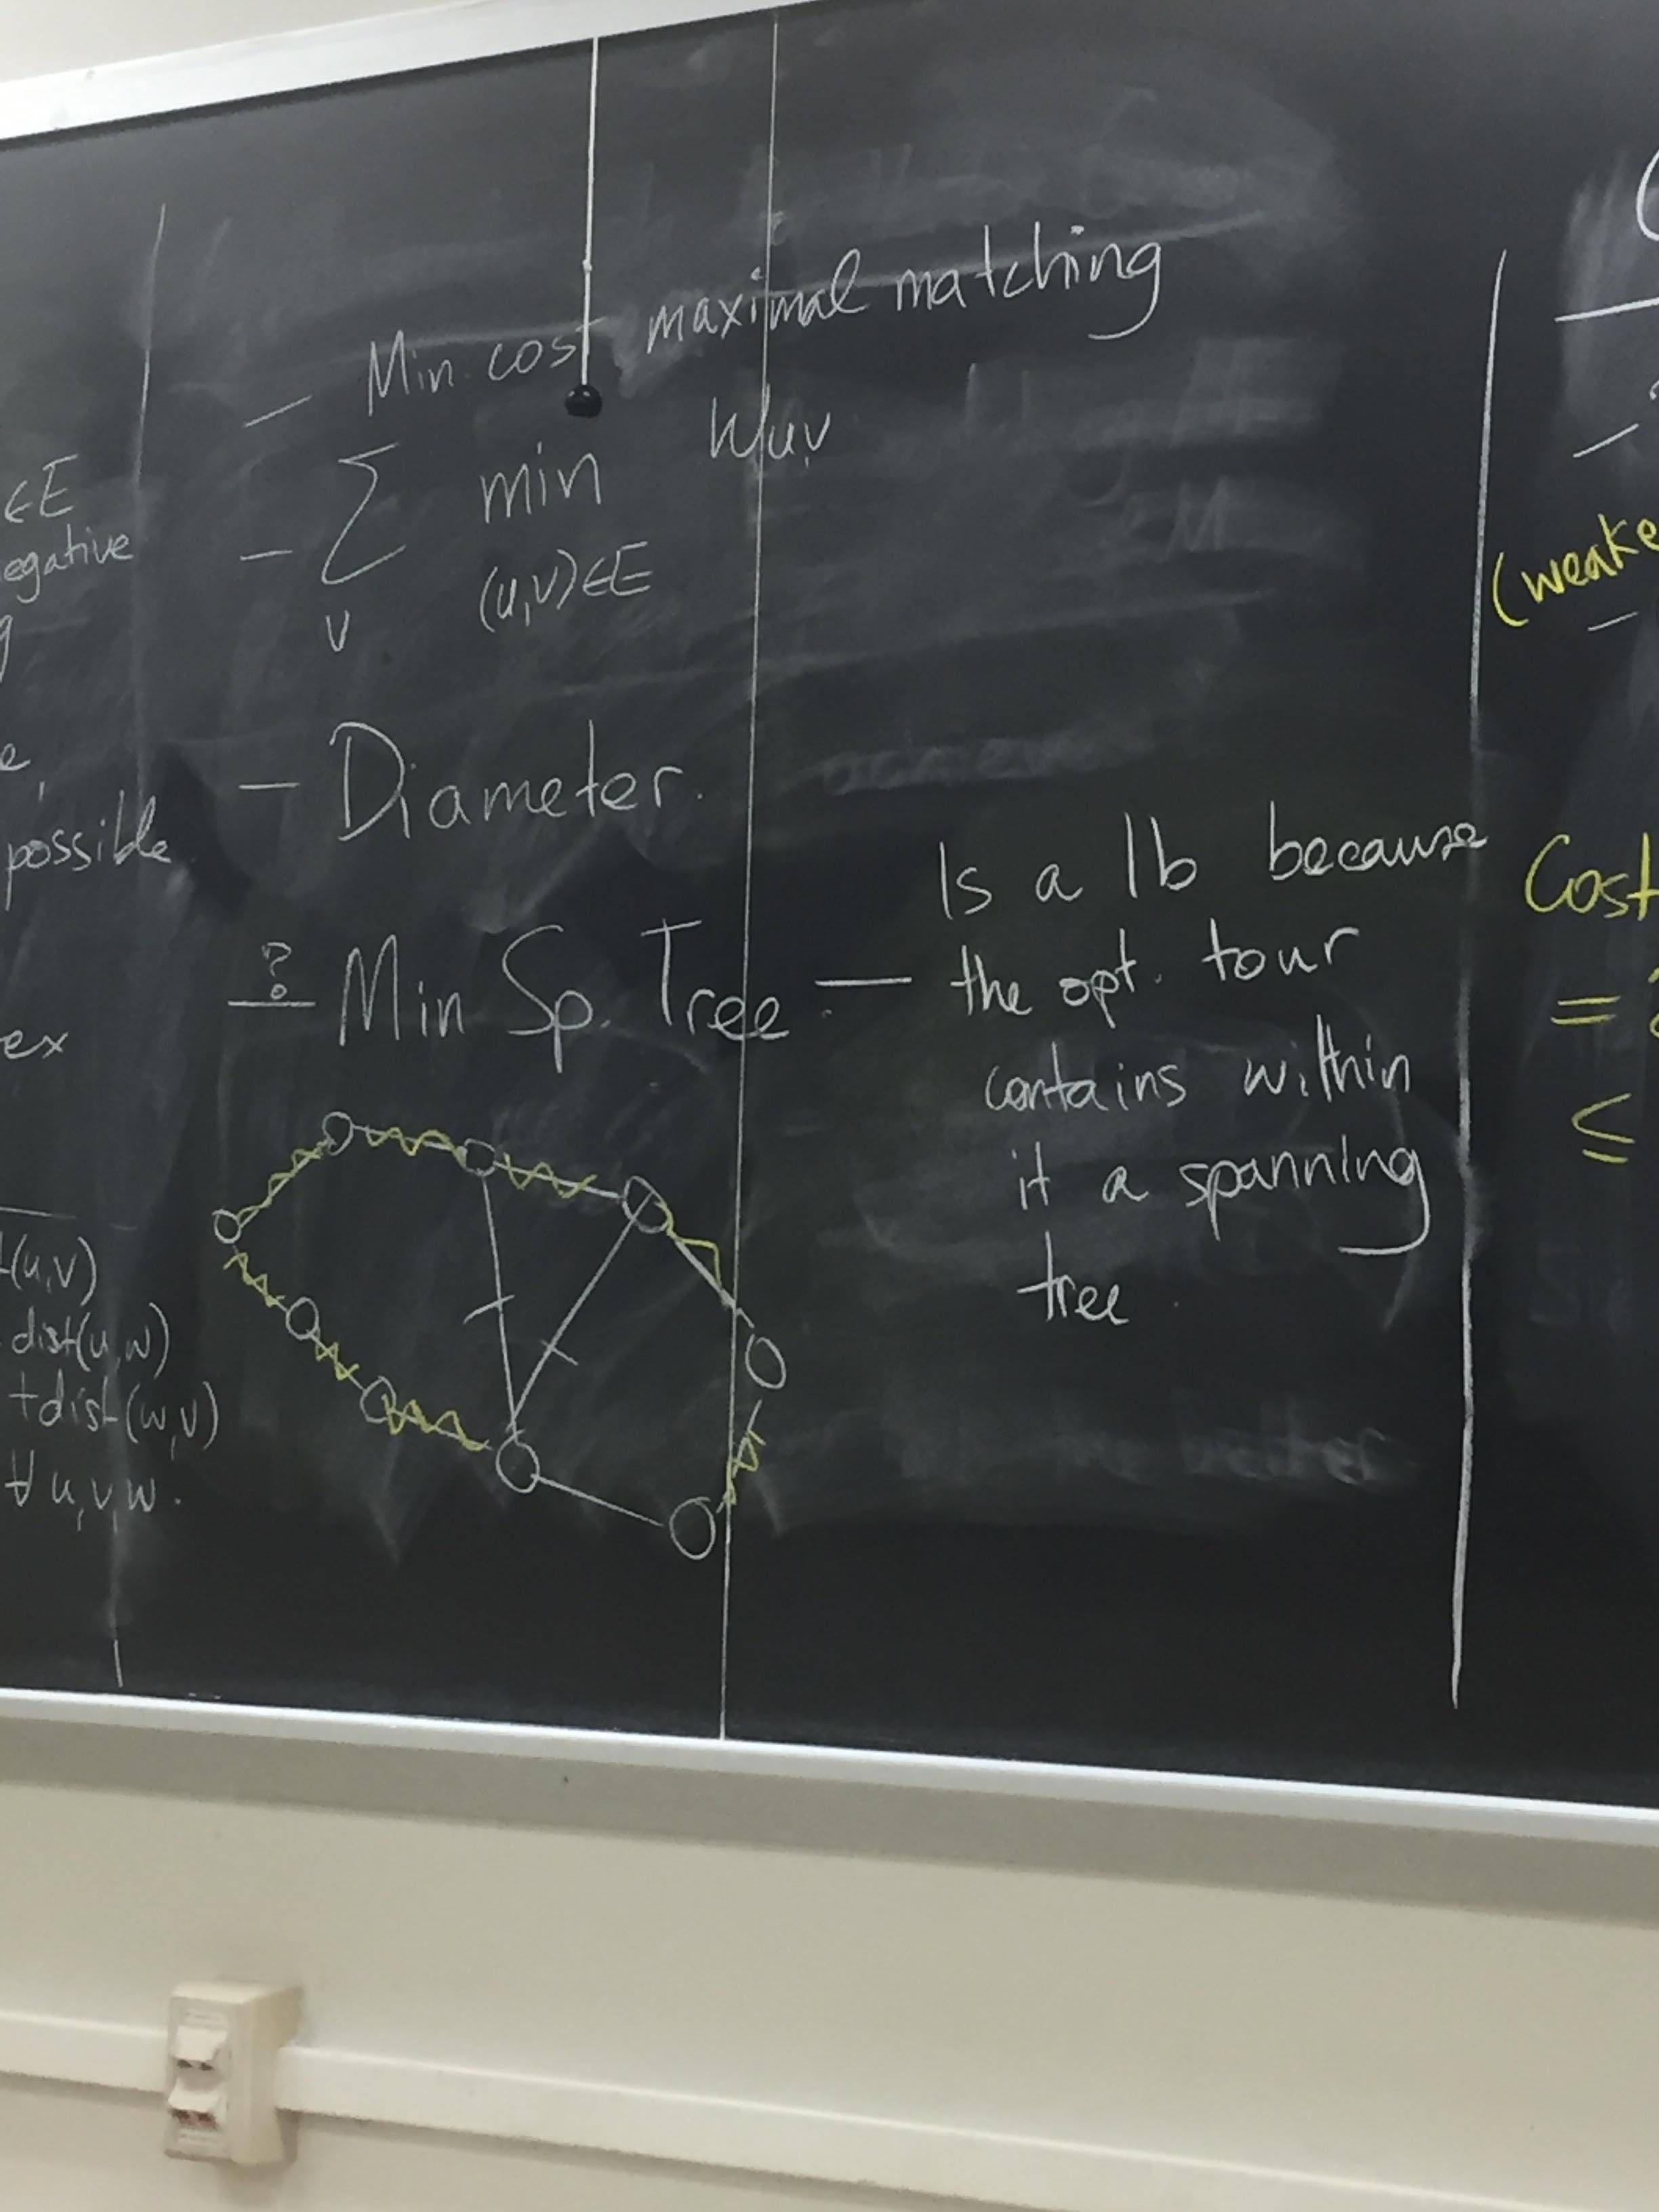 ∈E
egative
g
e,
possible
ex
t(u,v)
dist(u,w)
+dist(w,v)
∀ u,v,w.
— Min cost maximal matching
— ∑ min Wu,v
v (u,v)∈E
— Diameter.
? — Min Sp. Tree — Is a lb because
the opt. tour
contains within
it a spanning
tree.
(weake
Cost
=
≤